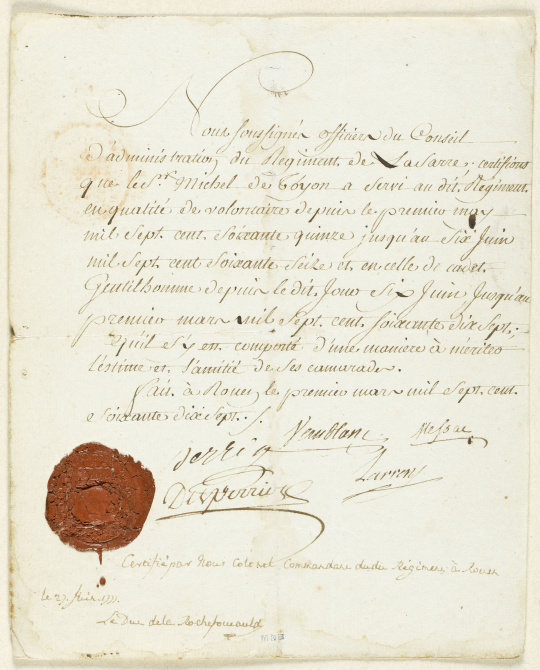 Nous soussignés officiers du Conseil
d'administration du Régiment de La Sarre; certifions
que le Sr. Michel de Coyon a servi au dit. Régiment
en qualité de volontaire depuis le premier may
mil sept. cent. soixante quinze jusqu'au six Juin
mil sept cent soixante seize et. en celle de cadet.
Gentilhomme depuis le dit. Jour six Juin Jusqu'au
premier mars mil sept. cent. soixante dix sept.;
et qu'il s'y est. comporté d'une manière à mériter
l'éstime et. l'amitié de ses camarades.
fait. à Rouen, le premier mars mil sept. cent.
soixante dix sept.
Vaublanc
Desperries
Certifié par Nous Colonel Commandant dudit Régiment à Rouen
le 27 Juin 1777.
Le Duc de la Rochefoucauld